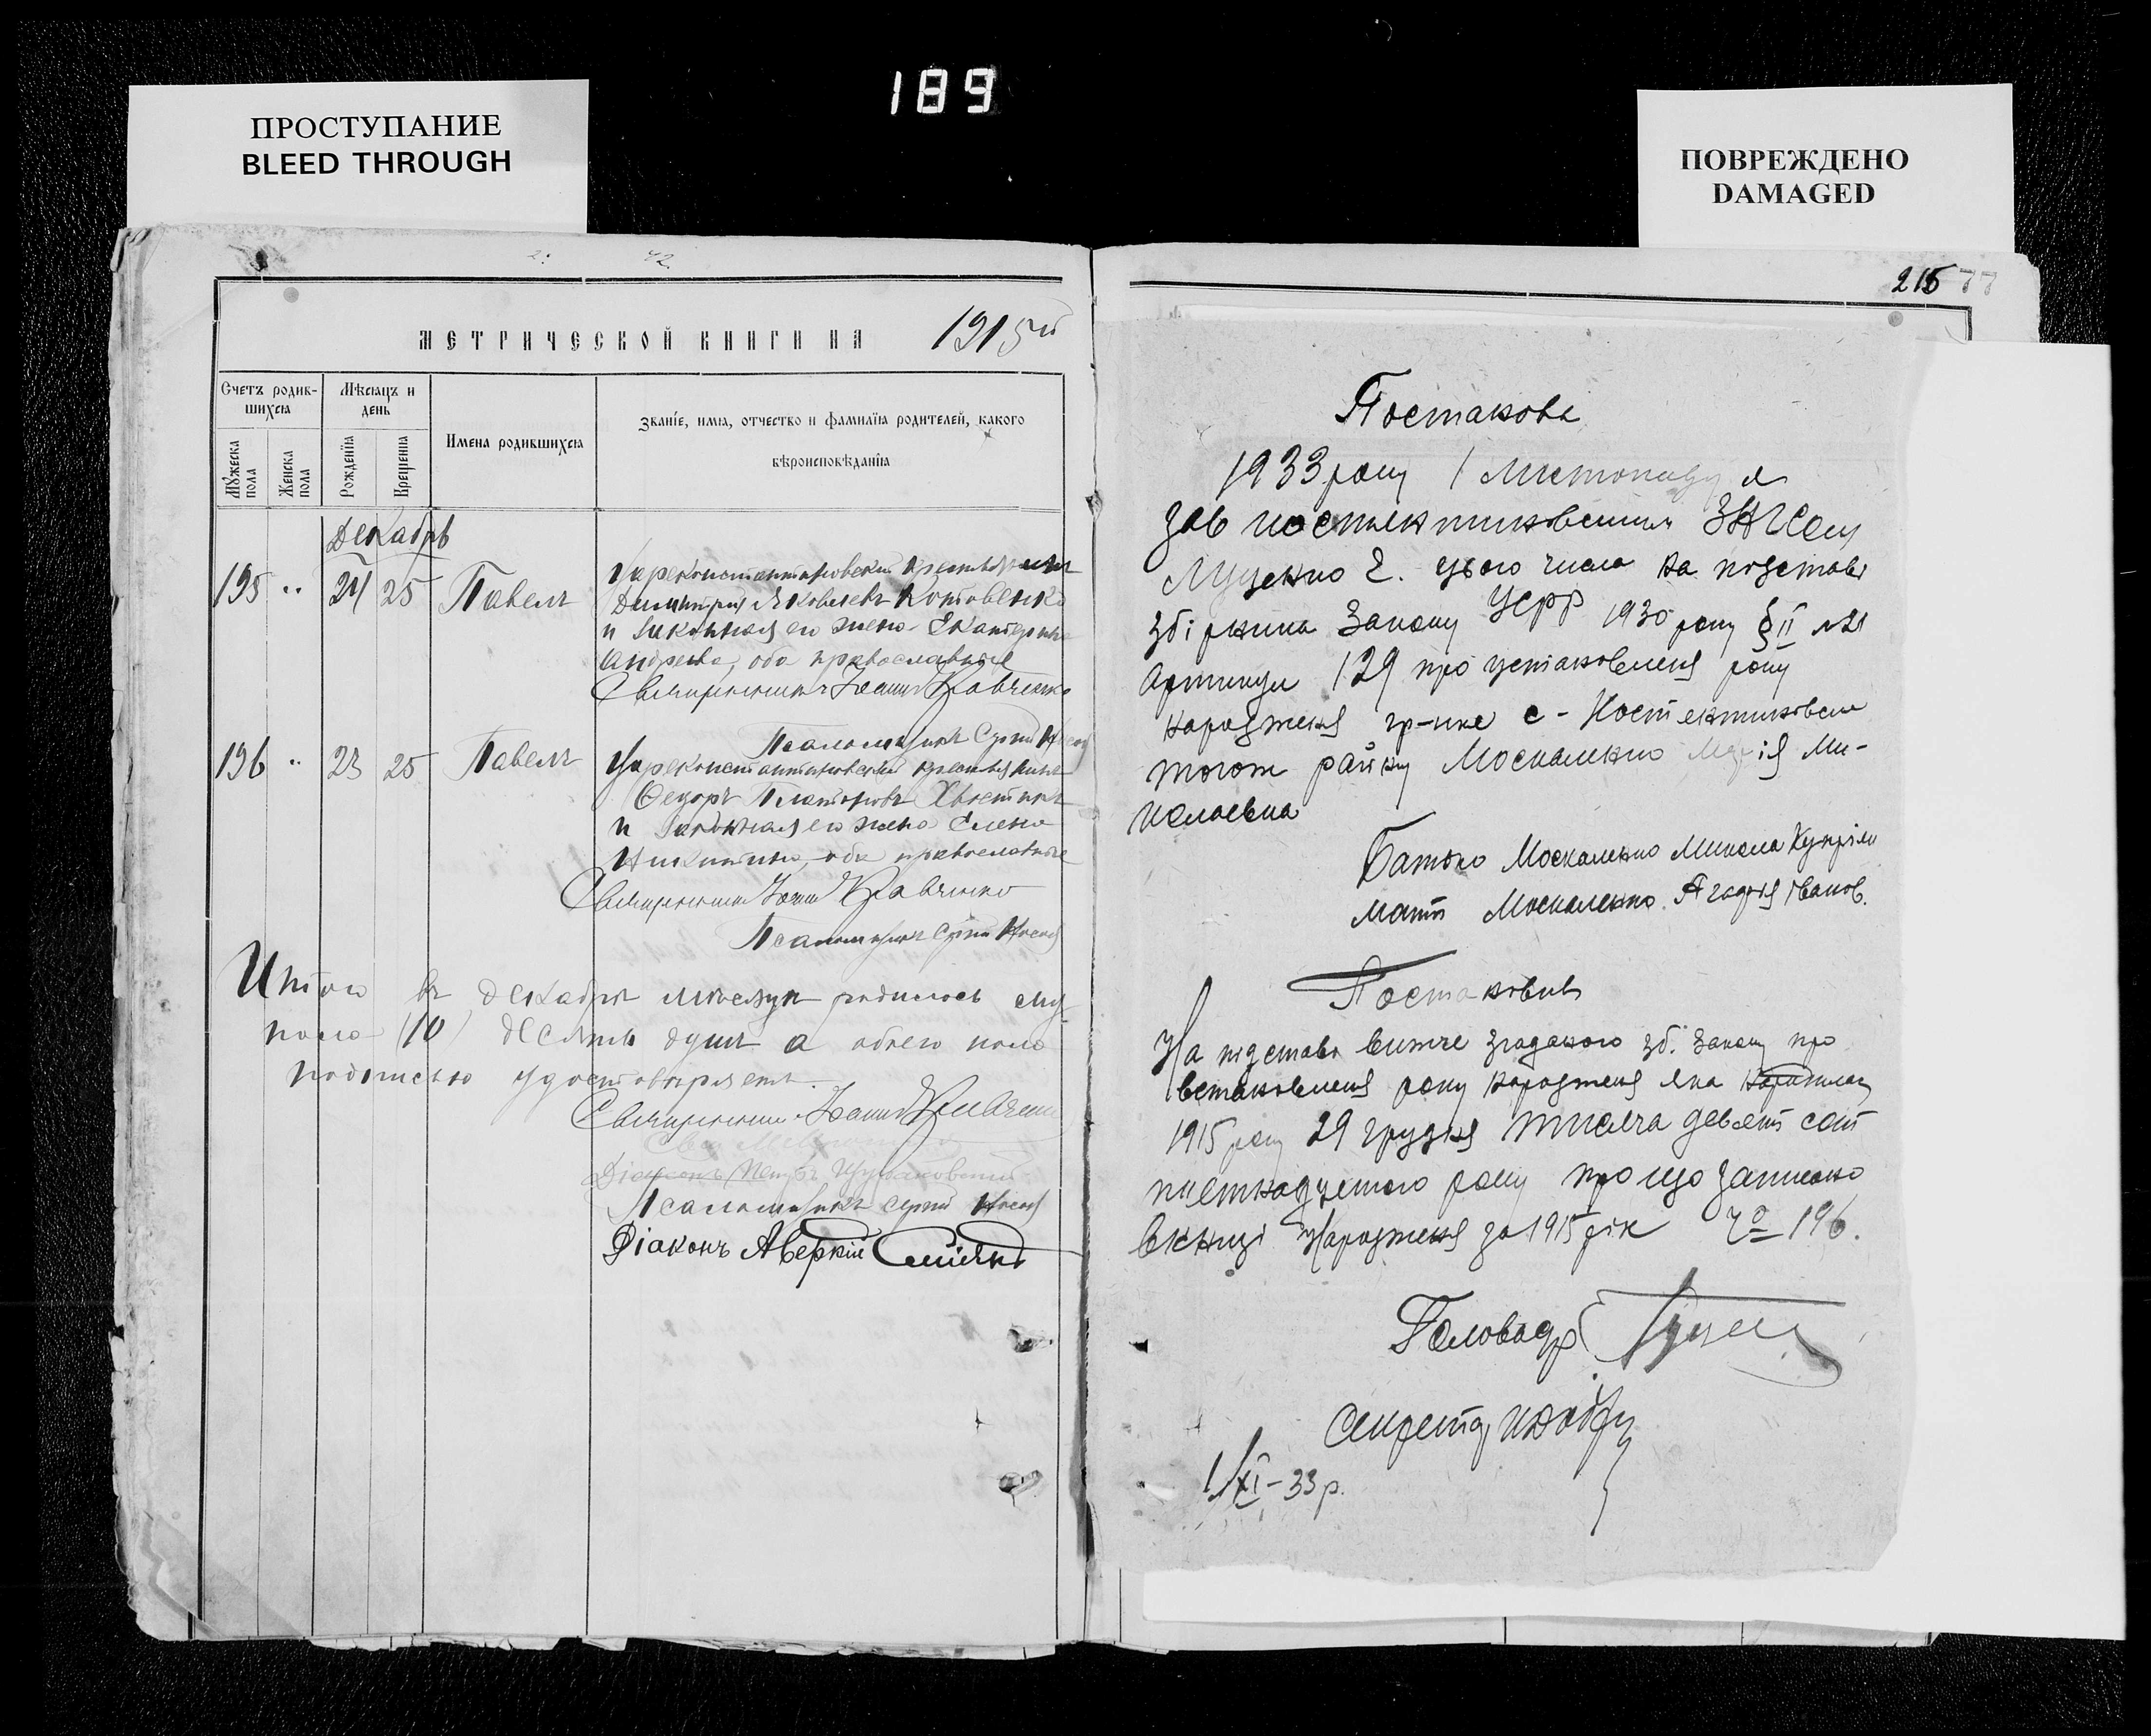 189
ПРОСТУПАНИЕ
BLEED THROUGH
ПОВРЕЖДЕНО
DAMAGED
МЕТРИЧЕСКОЙ КНИГИ НА 1915й
Счетъ родившихся
Мѣсяцъ и день
Имена родившихся
Званіе, имя, отчество и фамилія родителей, какого
вѣроисповѣданія
Мужеска пола
Женска пола
Рожденія
Крещенія
Декабрь
195 " 24 25 Павелъ
Цареконстантиновскій крестьянинъ
Димитрій Яковлевъ Котовенко
и законная его жена Екатерина
Андреева, оба православные
Священникъ Іоаннъ Кравченко
Псаломщикъ Сергій
196 " 23 25 Павелъ
Цареконстантиновскій крестьянинъ
Ѳеодоръ Платоновъ Хвостикъ
и законная его жена Елена
Никитина, оба православные
Священникъ Іоаннъ Кравченко
Псаломщикъ Сергій
Итого въ Декабрѣ мѣсяцѣ родилось муж
пола (10) десять душъ а обоего пола
подписью удостовѣряемъ.
Священникъ Іоаннъ Кравченко
Діаконъ Петръ
Псаломщикъ Сергій
Діаконъ Аверкій
215 77
Постанова
1933 року 1 Листопаду я
зав костянтиновським ЗАГСом
Луценко Є. цього числа на підставі
збірника Закону УСРР 1930 року § II №21
Артикул 129 про установленя року
народженя гр-нке с-Костянтиновки
тогож району Москаленко Марія Ми-
колаевна
Батько Москаленко Микола Купріян
Мати Москаленко Агафія Іванов.
Постановив
На підставі вижче згаданого зб. Закону про
встановленя року народженя яка народилась
1915 року 29 грудня тисяча девять сот
пятнадцятого року про що записано
вкнизі Народженя за 1915 рік Чо 196.
Секретар
1/XI-33 р.